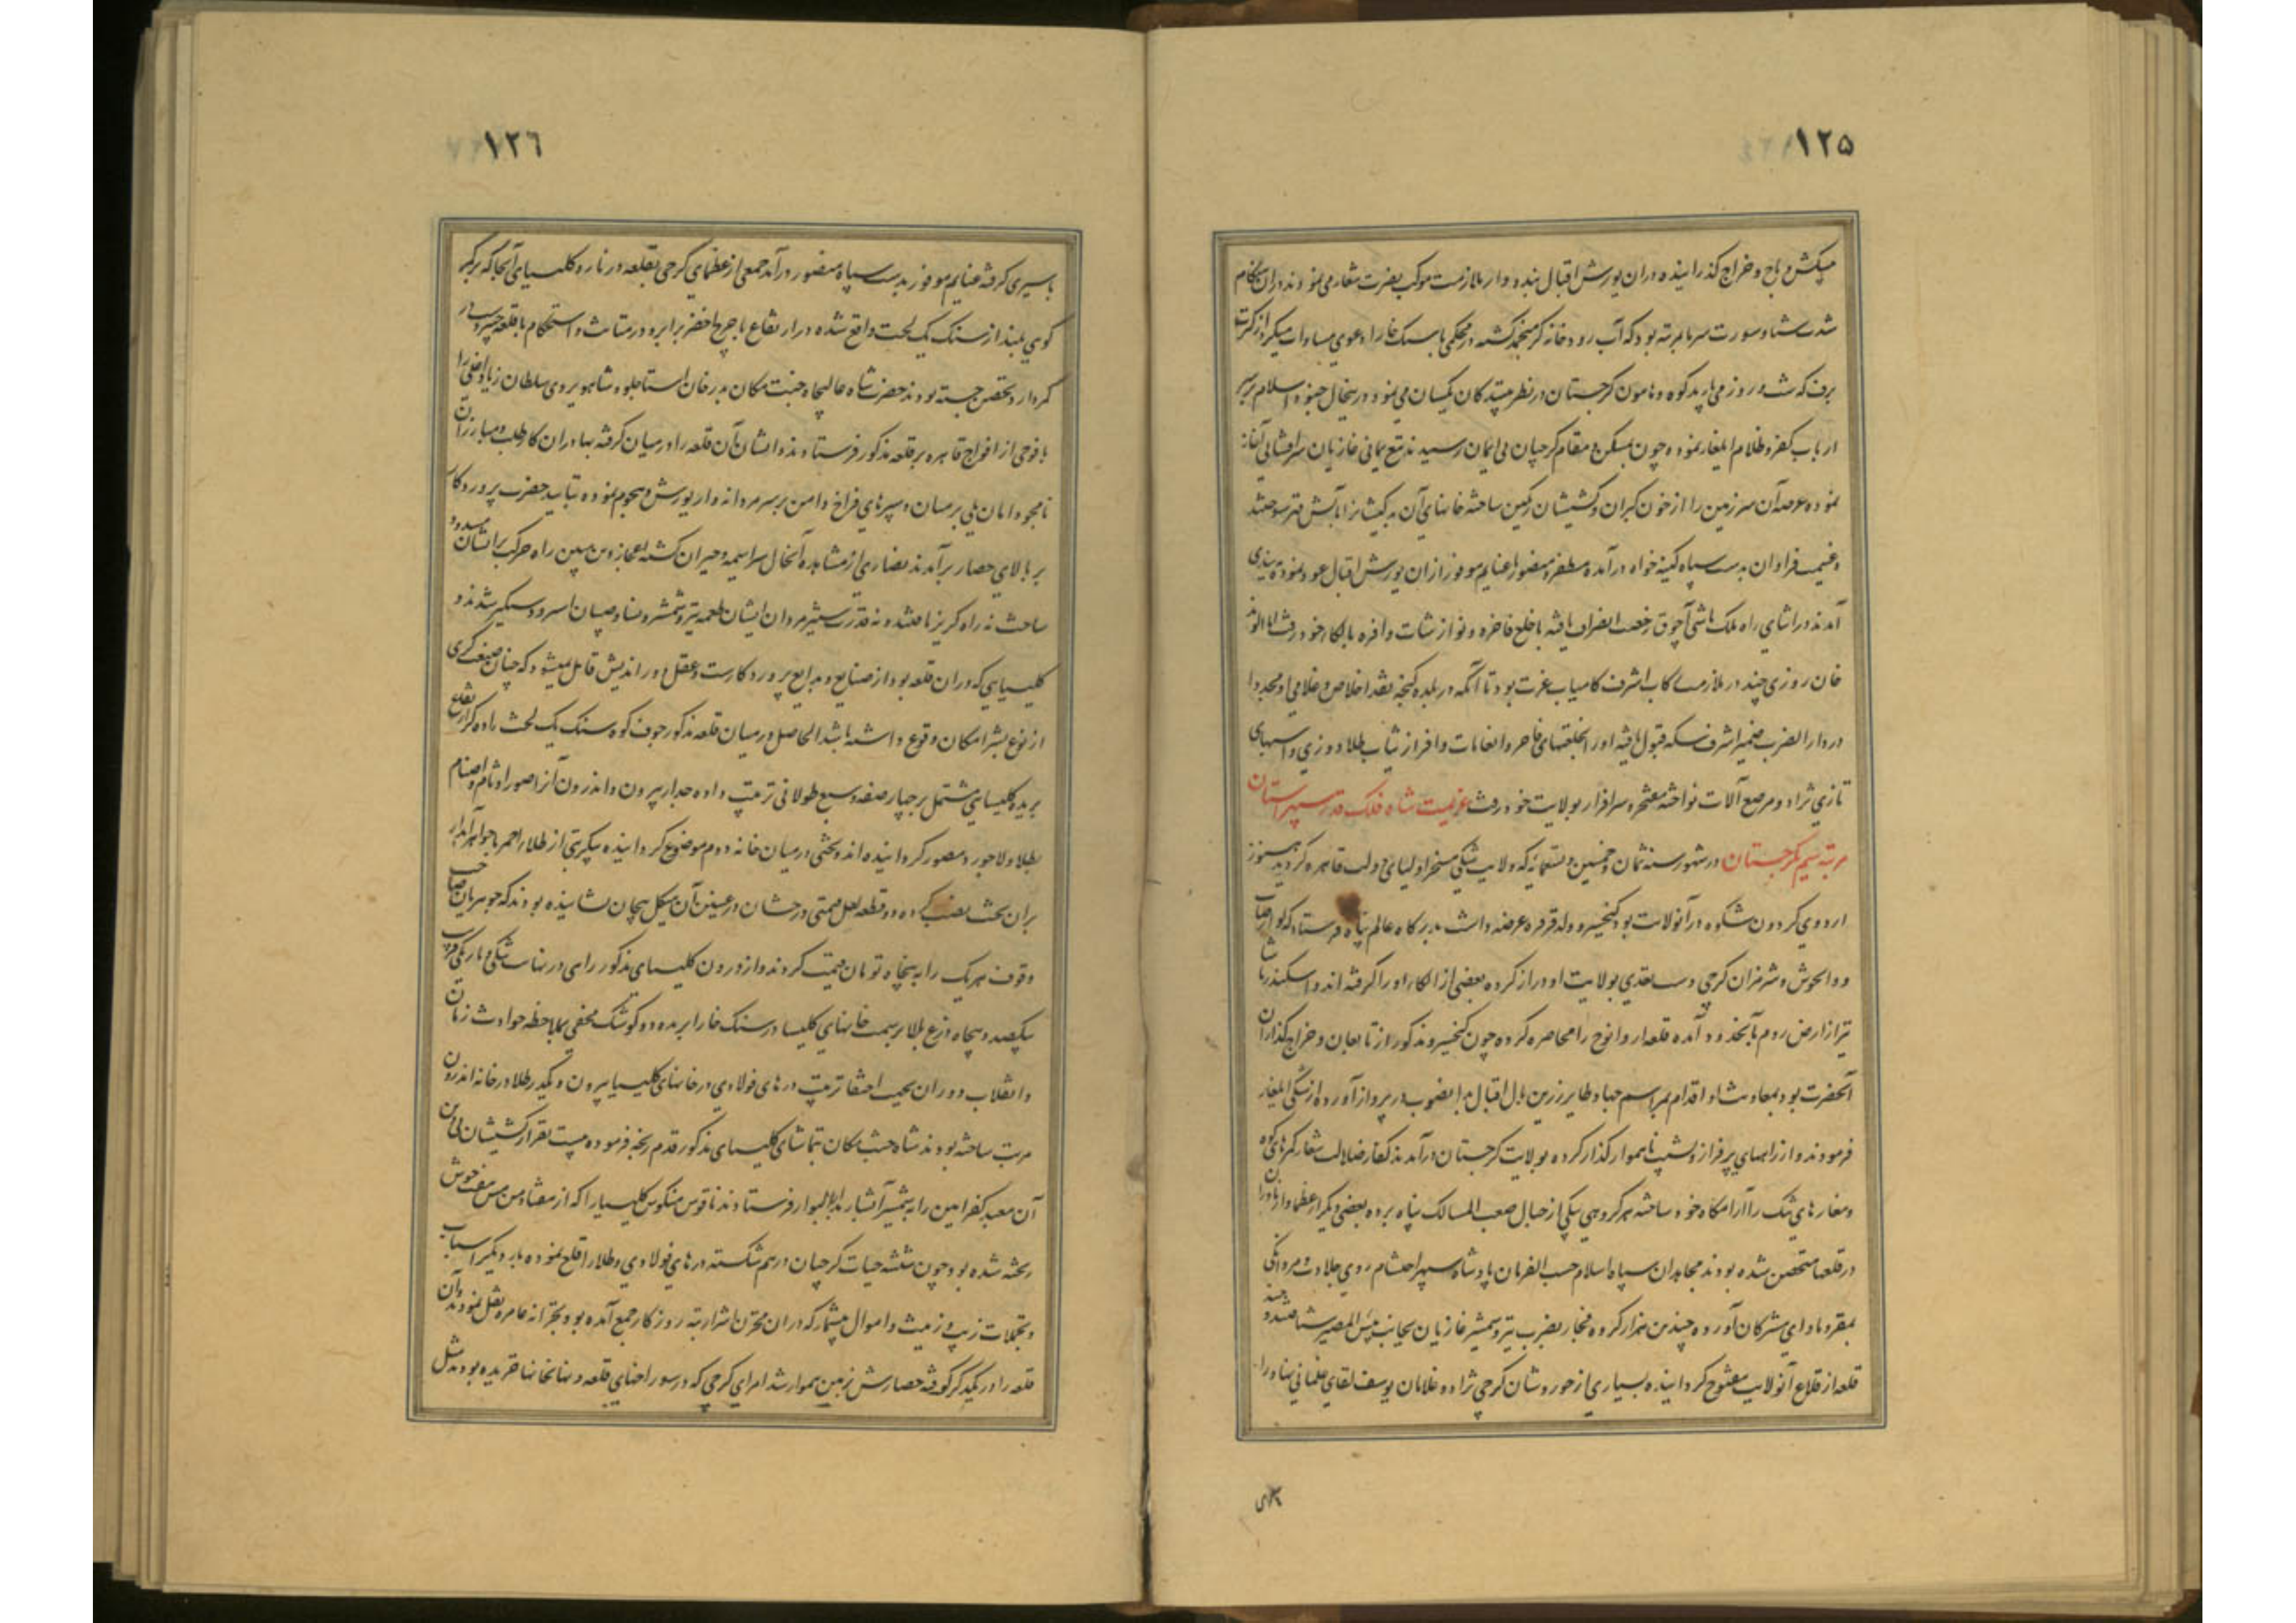 ۱۲۵
میکش و باج و خراج گذرانیده در ان یورش اقبال بنده وار ملازمت موکب نصرت شعار می نمود در ان هنکام
شدت شتا و سورت سرما بمرتبه بود که آب رودخانه کر منجمد کشته در محکمی با سنک خارا دعوی مساوات میکرد از کثرت
برف که شب و روز می بارید کوه و هامون کرجستان در نظر مترددین کان یکسان می نمود در ینحال جنود اسلام بر سر
ارباب کفر و ظلام ایلغار نموده چون بمسکن و مقام کرجیان بی ایمان رسیدند تیغ یمانی غازیان سرافشانی آغاز
نموده عرصه آن سرزمین را از خون کبران و کشیشان رنکین ساخته خانهای آن بدکیشانرا بآتش قهر سوختند
و غنیمت فراوان بدست سپاه کینه خواه در آمده مظفر و منصور با غنایم موفور از ان یورش اقبال عود نموده
آمدند در اثنای راه ملک باشی آچوق رخصت انصراف یافته با خلع فاخره و نوازشات وافره بالکاء خود رفت اما الوند
خان روزی چند در ملازمت رکاب اشرف کامیاب عزت بود تا آنکه در بلده کنجه نقد اخلاص و غلامی او مجددا
در دار الضرب ضمیر اشرف سکه قبول یافته او را بخلعتهای فاخر و انعامات وافر از ثیاب طلادوزی و اسبهای
تازی نژاد و مرصع آلات نواخته مفتخر و سرافراز بولایت خود رفت عزیمت شاه فلک قدر سپهر آستان
مرتبه سیم بکرجستان در شهور سنه ثمان و خمسین و تسعمایه که ولایت شکی مسخر اولیای دولت قاهره کردید هنوز
اردوی کردون شکوه در آنولایت بود کیخسرو ولد قرقره عرضه داشت بدرکاه عالم پناه فرستاد که لوارصاب
و وداخوش و شرمزان کرجی دست تعدی بولایت او دراز کرده بعضی از الکاء او را کرفته اند و اسکندر پاشا
نیز از ارض روم بآنحدود آمده قلعه ار دانوج را محاصره کرده چون کیخسرو مذکور از تابعان و خراج کذاران
آنحضرت بود بمعاونت او اقدام بمراسم جهاد طایر زرین بال اقبال بدانصوب در پرواز آورده از شکی ایلغار
فرمودند و از راههای پر فراز و نشیب ناهموار کذار کرده بولایت کرجستان در آمدند کفار ضلالت شعار کمرهای کوه
و مغارهای تنک را آرامکاه خود ساخته هر کروهی بیکی از جبال صعب المسالک پناه برده بعضی دیکر از عظما و ازناوران
در قلعها متحصن شده بودند مجاهدان سپاه اسلام حسب الفرمان پادشاه سپهر احتشام روی جلادت و مردانکی
بمقر و ماوای مشرکان آورده چندین هزار کروه فجار بضرب تیر و شمشیر غازیان بجانب بئس المصیر شتافتند و چند
قلعه از قلاع آنولایت مفتوح کردانیده بسیاری از حوروشان کرجی نژاد و غلامان یوسف لقای غلمانی نهاد را
۱۲۶
باسیری کرفته غنایم موفور بدست سپاه منصور در آمد جمعی از عظمای کرجی بقلعه در نارو کلیسیای آنجا که بر کمر
کوهی بلند از سنک یک لخت واقع شده در ارتفاع با چرخ اخضر برابر و در متانت و استحکام با قلعه خیبر
کردار تحصن جسته بودند حضرت شاه عالیجاه جنت مکان بدرخان استاجلو و شاهویردی سلطان زیاد اغلی را
با فوجی از افواج قاهره بر قلعه مذکور فرستادند و ایشان آن قلعه را در میان کرفته بهادران کار طلب و مبارزان
نامجو دامان یلی بر میان و سپرهای فراخ دامن بر سر مردانه وار یورش و هجوم نموده بتایید حضرت پروردکار
بر بالای حصار برآمدند نصاری از مشاهده آنحال سراسیمه و حیران کشته اعجاز دین مبین راه حرکت بر ایشان مسدود
ساخت نه راه کریز یافتند و نه قدرت ستیز مردان ایشان طعمه تیر و شمشیر و نسا و صبیان اسیر و دستکیر شدند و
کلیسیایی که در ان قلعه بود از صنایع و بدایع پروردکارست و عقل دور اندیش قایل نمیشود که چنان صنعت کری
از نوع بشر امکان وقوع داشته باشد الحاصل در میان قلعه مذکور جوف کوه سنک یک لخت را ده کز ارتفاع
بریده کلیسیایی مشتمل بر چهار صفه وسیع طولانی ترتیب داده جدار بیرون و اندرون آنرا صور اوثان و اصنام
بطلا و لاجورد مصور کردانیده اند و تختی در میان خانه دوم موضوع کردانیده پیکر بتی از طلاء احمر با جواهر آبدار
بران تخت نصب کرده دو قطعه لعل قیمتی درخشان در عینین آن هیکل بیجان نشانیده بودند که جوهریان صاحب
وقوف هر یک را به پنجاه تومان قیمت کردند و از درون کلیسای مذکور راهی در نهایت تنکی و باریکی قریب
یکصد و پنجاه ذرع بالا بر سمت خانهای کلیسا در سنک خارا بریده دو کوشک مخفی بملاحظه حوادث زمان
و انقلاب دوران بجهت اختفا ترتیب درهای فولادی در خانهای کلیسیا بیرون و یکدر طلا در خانه اندرون
مرتب ساخته بودند شاه جنت مکان بتماشای کلیسای مذکور قدم رنجه فرموده بیست نفر از کشیشان بی دین
آن معبد کفر آیین را به شمشیر آتشبار بدار البوار فرستادند ناقوس منکوس کلیسیا را که از هفتاد من مس هفت جوش
ریخته شده بود چون شیشه حیات کرجیان درهم شکسته درهای فولادی و طلا را قلع نموده با دیکر اسباب
و تجملات زیب و زینت و اموال بیشمار که در ان مخزن شرارت بروزکار جمع آمده بود بخزانه عامره نقل نمودند و آن
قلعه را در یکدیکر کوفته حصارش بزمین هموار شد امرای کرجی که در سوراخهای قلعه و نهانخانها خزیده بودند مثل